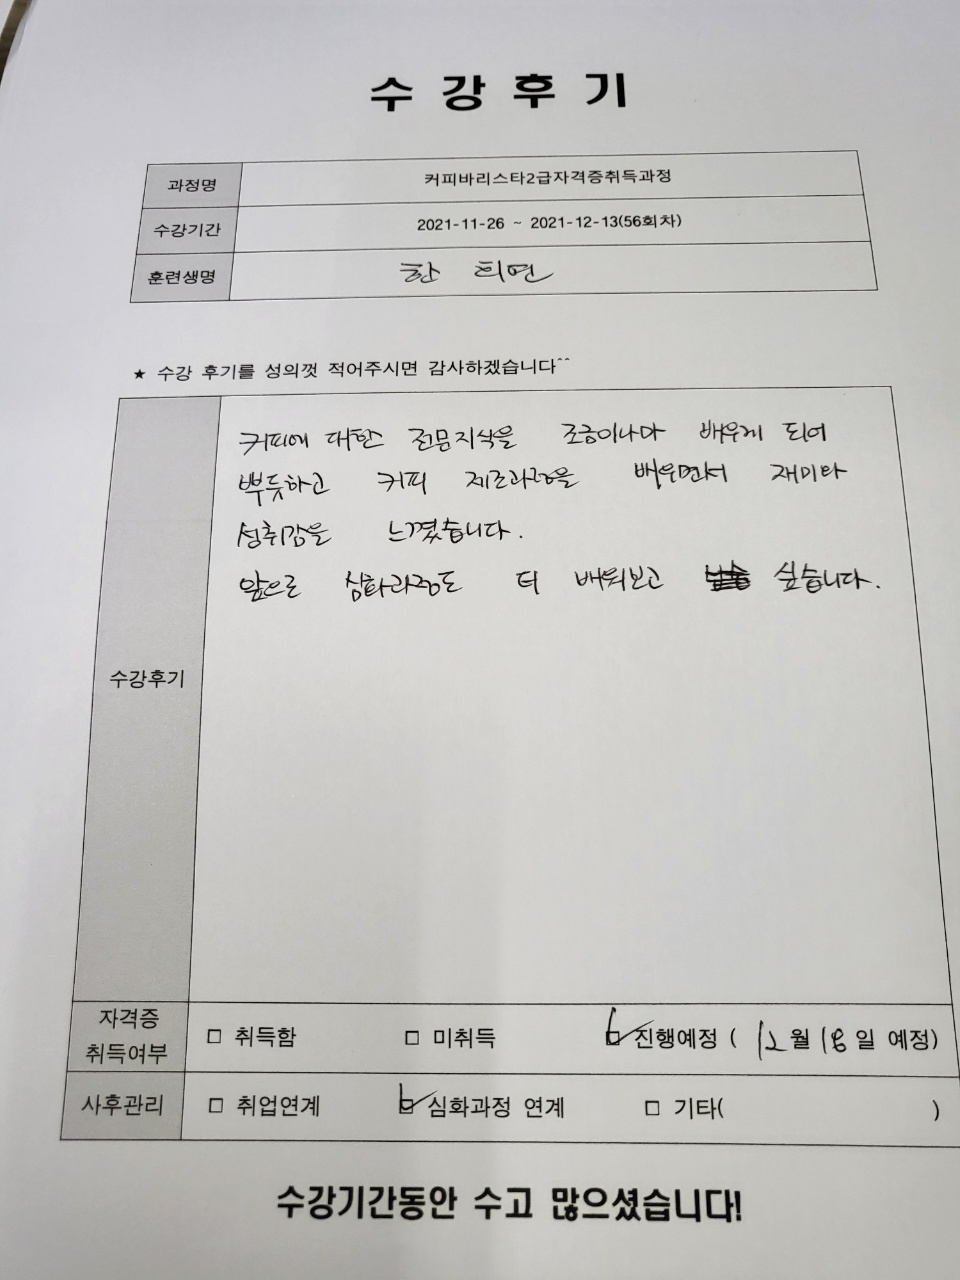 수 강 후 기
과정명 커피바리스타2급자격증취득과정
수강기간 2021-11-26 ~ 2021-12-13(56회차)
훈련생명 한 희연
★ 수강 후기를 성의껏 적어주시면 감사하겠습니다^^
커피에 대한 전문지식을 조금이나마 배우게 되어
뿌듯하고 커피 제조과정을 배우면서 재미와
성취감을 느꼈습니다.
앞으로 심화과정도 더 배워보고 싶습니다.
수강후기
자격증
취득여부 □ 취득함 □ 미취득 ☑ 진행예정 ( 12월 18일 예정)
사후관리 □ 취업연계 ☑ 심화과정 연계 □ 기타( )
수강기간동안 수고 많으셨습니다!